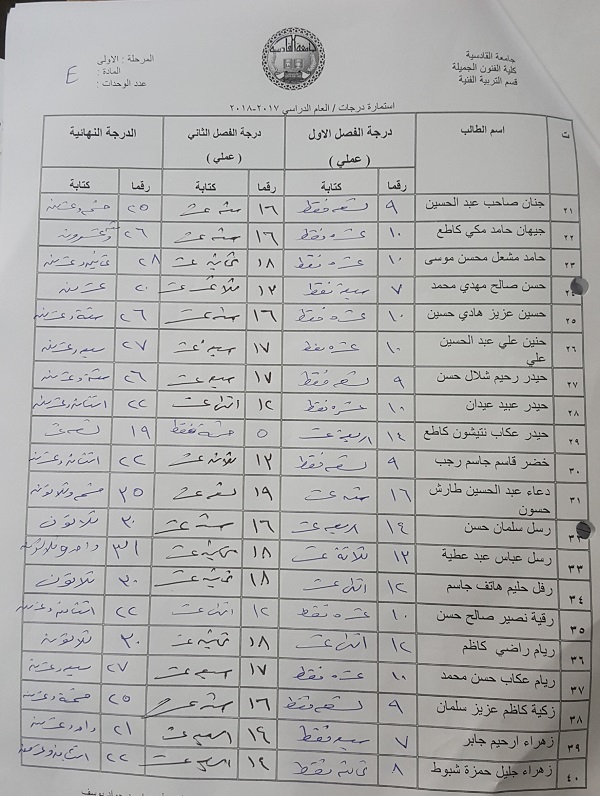 جامعة القادسية
كلية الفنون الجميلة
قسم التربية الفنية
جامعة القادسية
المرحلة : الاولى
المادة :
عدد الوحدات :
E
استمارة درجات / العام الدراسي ٢٠١٧-٢٠١٨
ت اسم الطالب درجة الفصل الاول (عملي) درجة الفصل الثاني (عملي) الدرجة النهائية
رقما كتابة رقما كتابة رقما كتابة
٢١ جنان صاحب عبد الحسين ٩ تسعة فقط ١٦ ستة عشر ٢٥ خمسة وعشرين
٢٢ جيهان حامد مكي كاطع ١٠ عشرة فقط ١٦ ستة عشر ٢٦ ستة وعشرون
٢٣ حامد مشعل محسن موسى ١٠ عشرة فقط ١٨ ثمانية عشر ٢٨ ثمانية وعشرين
٢٤ حسن صالح مهدي محمد ٧ سبعة فقط ١٣ ثلاثة عشر ٢٠ عشرين
٢٥ حسين عزيز هادي حسين ١٠ عشرة فقط ١٦ ستة عشر ٢٦ ستة وعشرين
٢٦ حنين علي عبد الحسين علي ١٠ عشرة فقط ١٧ سبعة عشر ٢٧ سبعة وعشرين
٢٧ حيدر رحيم شلال حسن ٩ تسعة فقط ١٧ سبعة عشر ٢٦ ستة وعشرين
٢٨ حيدر عبيد عيدان ١٠ عشرة فقط ١٢ اثنى عشر ٢٢ اثنان وعشرين
٢٩ حيدر عكاب نتيشون كاطع ١٤ اربعة عشر ٥ خمسة فقط ١٩ تسعة عشر
٣٠ خضر قاسم جاسم رجب ٩ تسعة فقط ١٣ ثلاثة عشر ٢٢ اثنان وعشرين
٣١ دعاء عبد الحسين طارش حسون ١٦ ستة عشر ١٩ تسعة عشر ٣٥ خمسة وثلاثون
٣٢ رسل سلمان حسن ١٤ اربعة عشر ١٦ ستة عشر ٣٠ ثلاثون
٣٣ رسل عباس عبد عطية ١٣ ثلاثة عشر ١٨ ثمانية عشر ٣١ واحد وثلاثون
٣٤ رفل حليم هاتف جاسم ١٢ اثنى عشر ١٨ ثمانية عشر ٣٠ ثلاثون
٣٥ رقية نصير صالح حسن ١٠ عشرة فقط ١٢ اثنى عشر ٢٢ اثنان وعشرين
٣٦ ريام راضي كاظم ١٢ اثنى عشر ١٨ ثمانية عشر ٣٠ ثلاثون
٣٧ ريام عكاب حسن محمد ١٠ عشرة فقط ١٧ سبعة عشر ٢٧ سبعة وعشرين
٣٨ زكية كاظم عزيز سلمان ٩ تسعة فقط ١٦ ستة عشر ٢٥ خمسة وعشرين
٣٩ زهراء ارحيم جابر ٧ سبعة فقط ١٤ اربعة عشر ٢١ واحد وعشرين
٤٠ زهراء جليل حمزة شبوط ٨ ثمانية فقط ١٤ اربعة عشر ٢٢ اثنان وعشرين